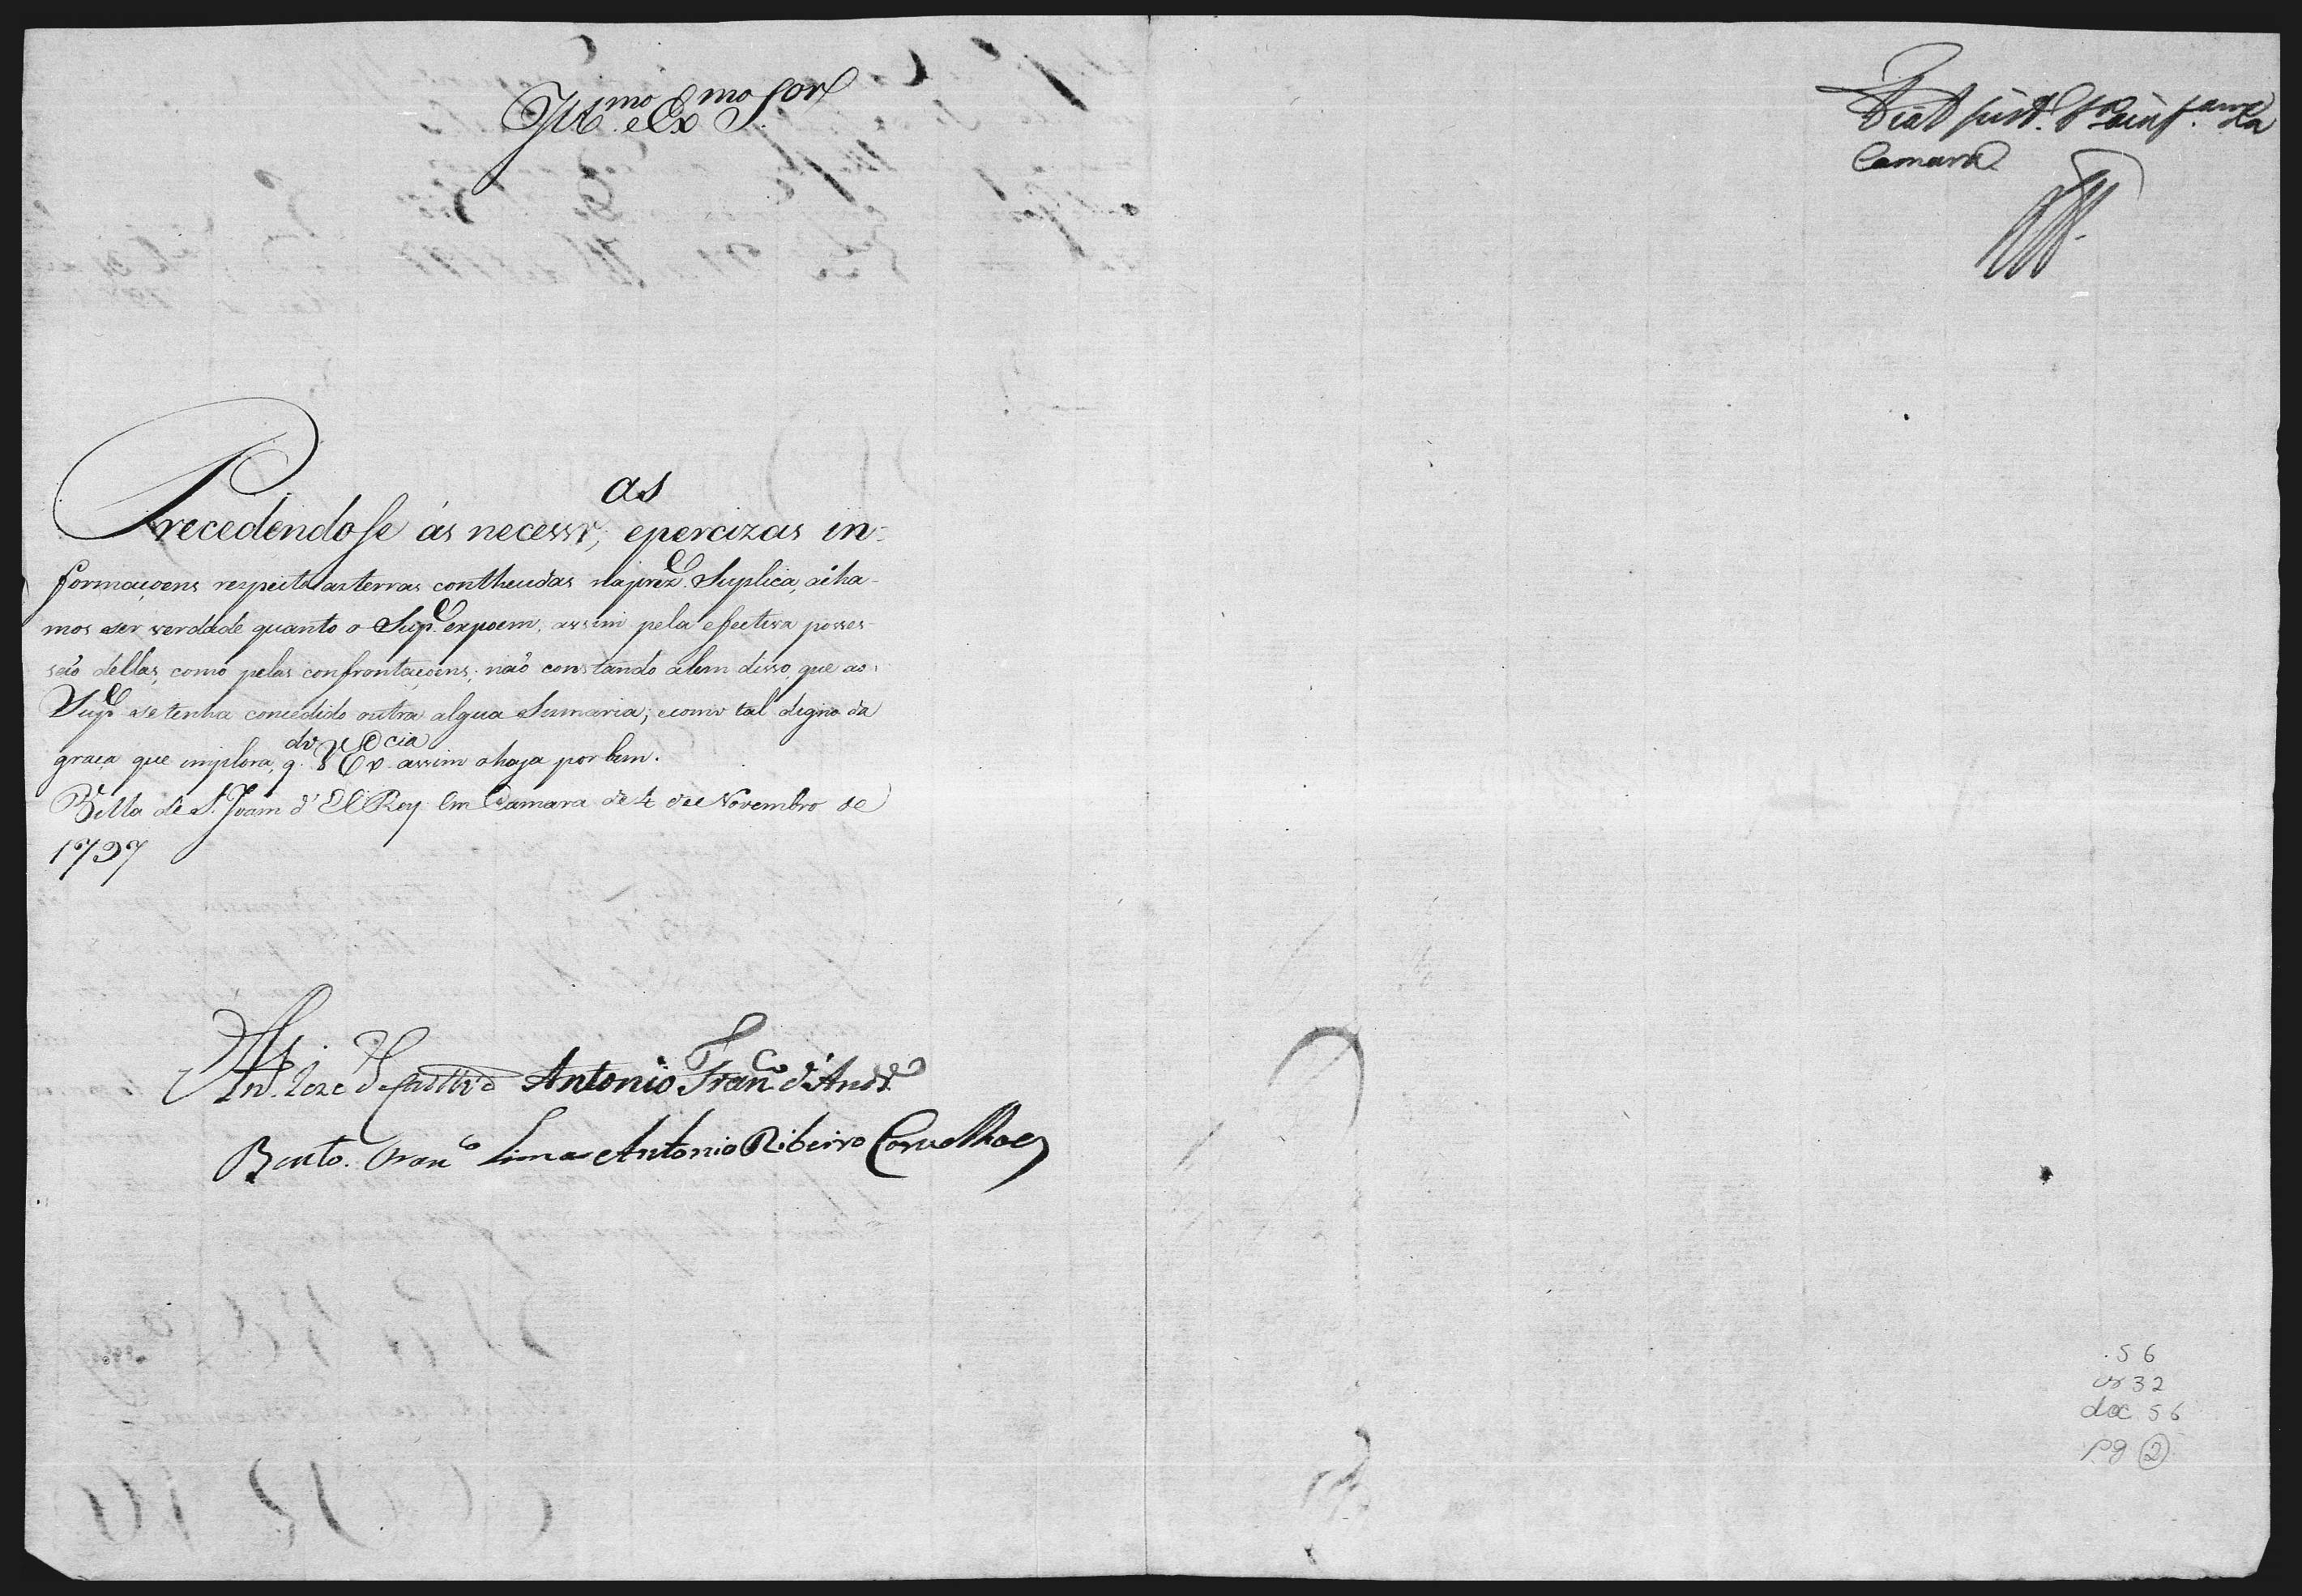 Ill.mo e Ex.mo S.or
Precedendose ás necessr.as, epercizas in-
formaçoens respeito as terras contheudas naprez.e Suplica, acha-
mos ser verdade quanto o Sup.e expoem, assim pela efectiva posses-
saõ dellas, como pelas confrontaçoens; naõ constando alem disso, que ao
Sup.e se tenha concedido outra algua Sumaria; ecomo tal digno da
graça que implora, q.do V Ex.cia assim ohaja por bem.
Villa de S. Joam d'El Rey em Camara de 4 de Novembro de
1797
An.to Joze de Castro Antonio Fran.co d'Andr.e
Bento Fran.co Lima Antonio Ribeiro Carvalhaes
Fiat just.
Camara
56
cx 32
doc 56
pg 2